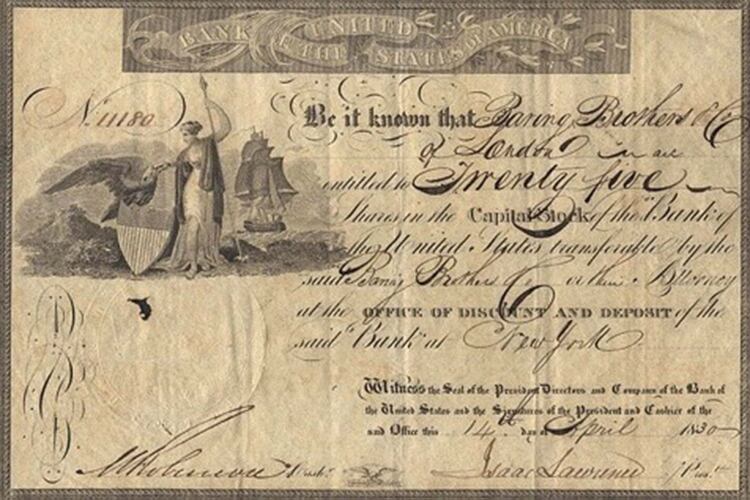 BANK OF THE UNITED STATES OF AMERICA
No. 11180
Be it known that Baring Brothers & Co
of London are
entitled to Twenty five
Shares in the Capital Stock of the "Bank of
the United States transferable by the
said Baring Brothers or their Attorney
at the OFFICE OF DISCOUNT AND DEPOSIT of the
said "Bank" at New York
Witness the Seal of the President Directors and Company of the Bank of
the United States and the Signatures of the President and Cashier of the
said Office this 14th day of April 1830
M Robinson Cash.r
Isaac Lawrence Pres.t